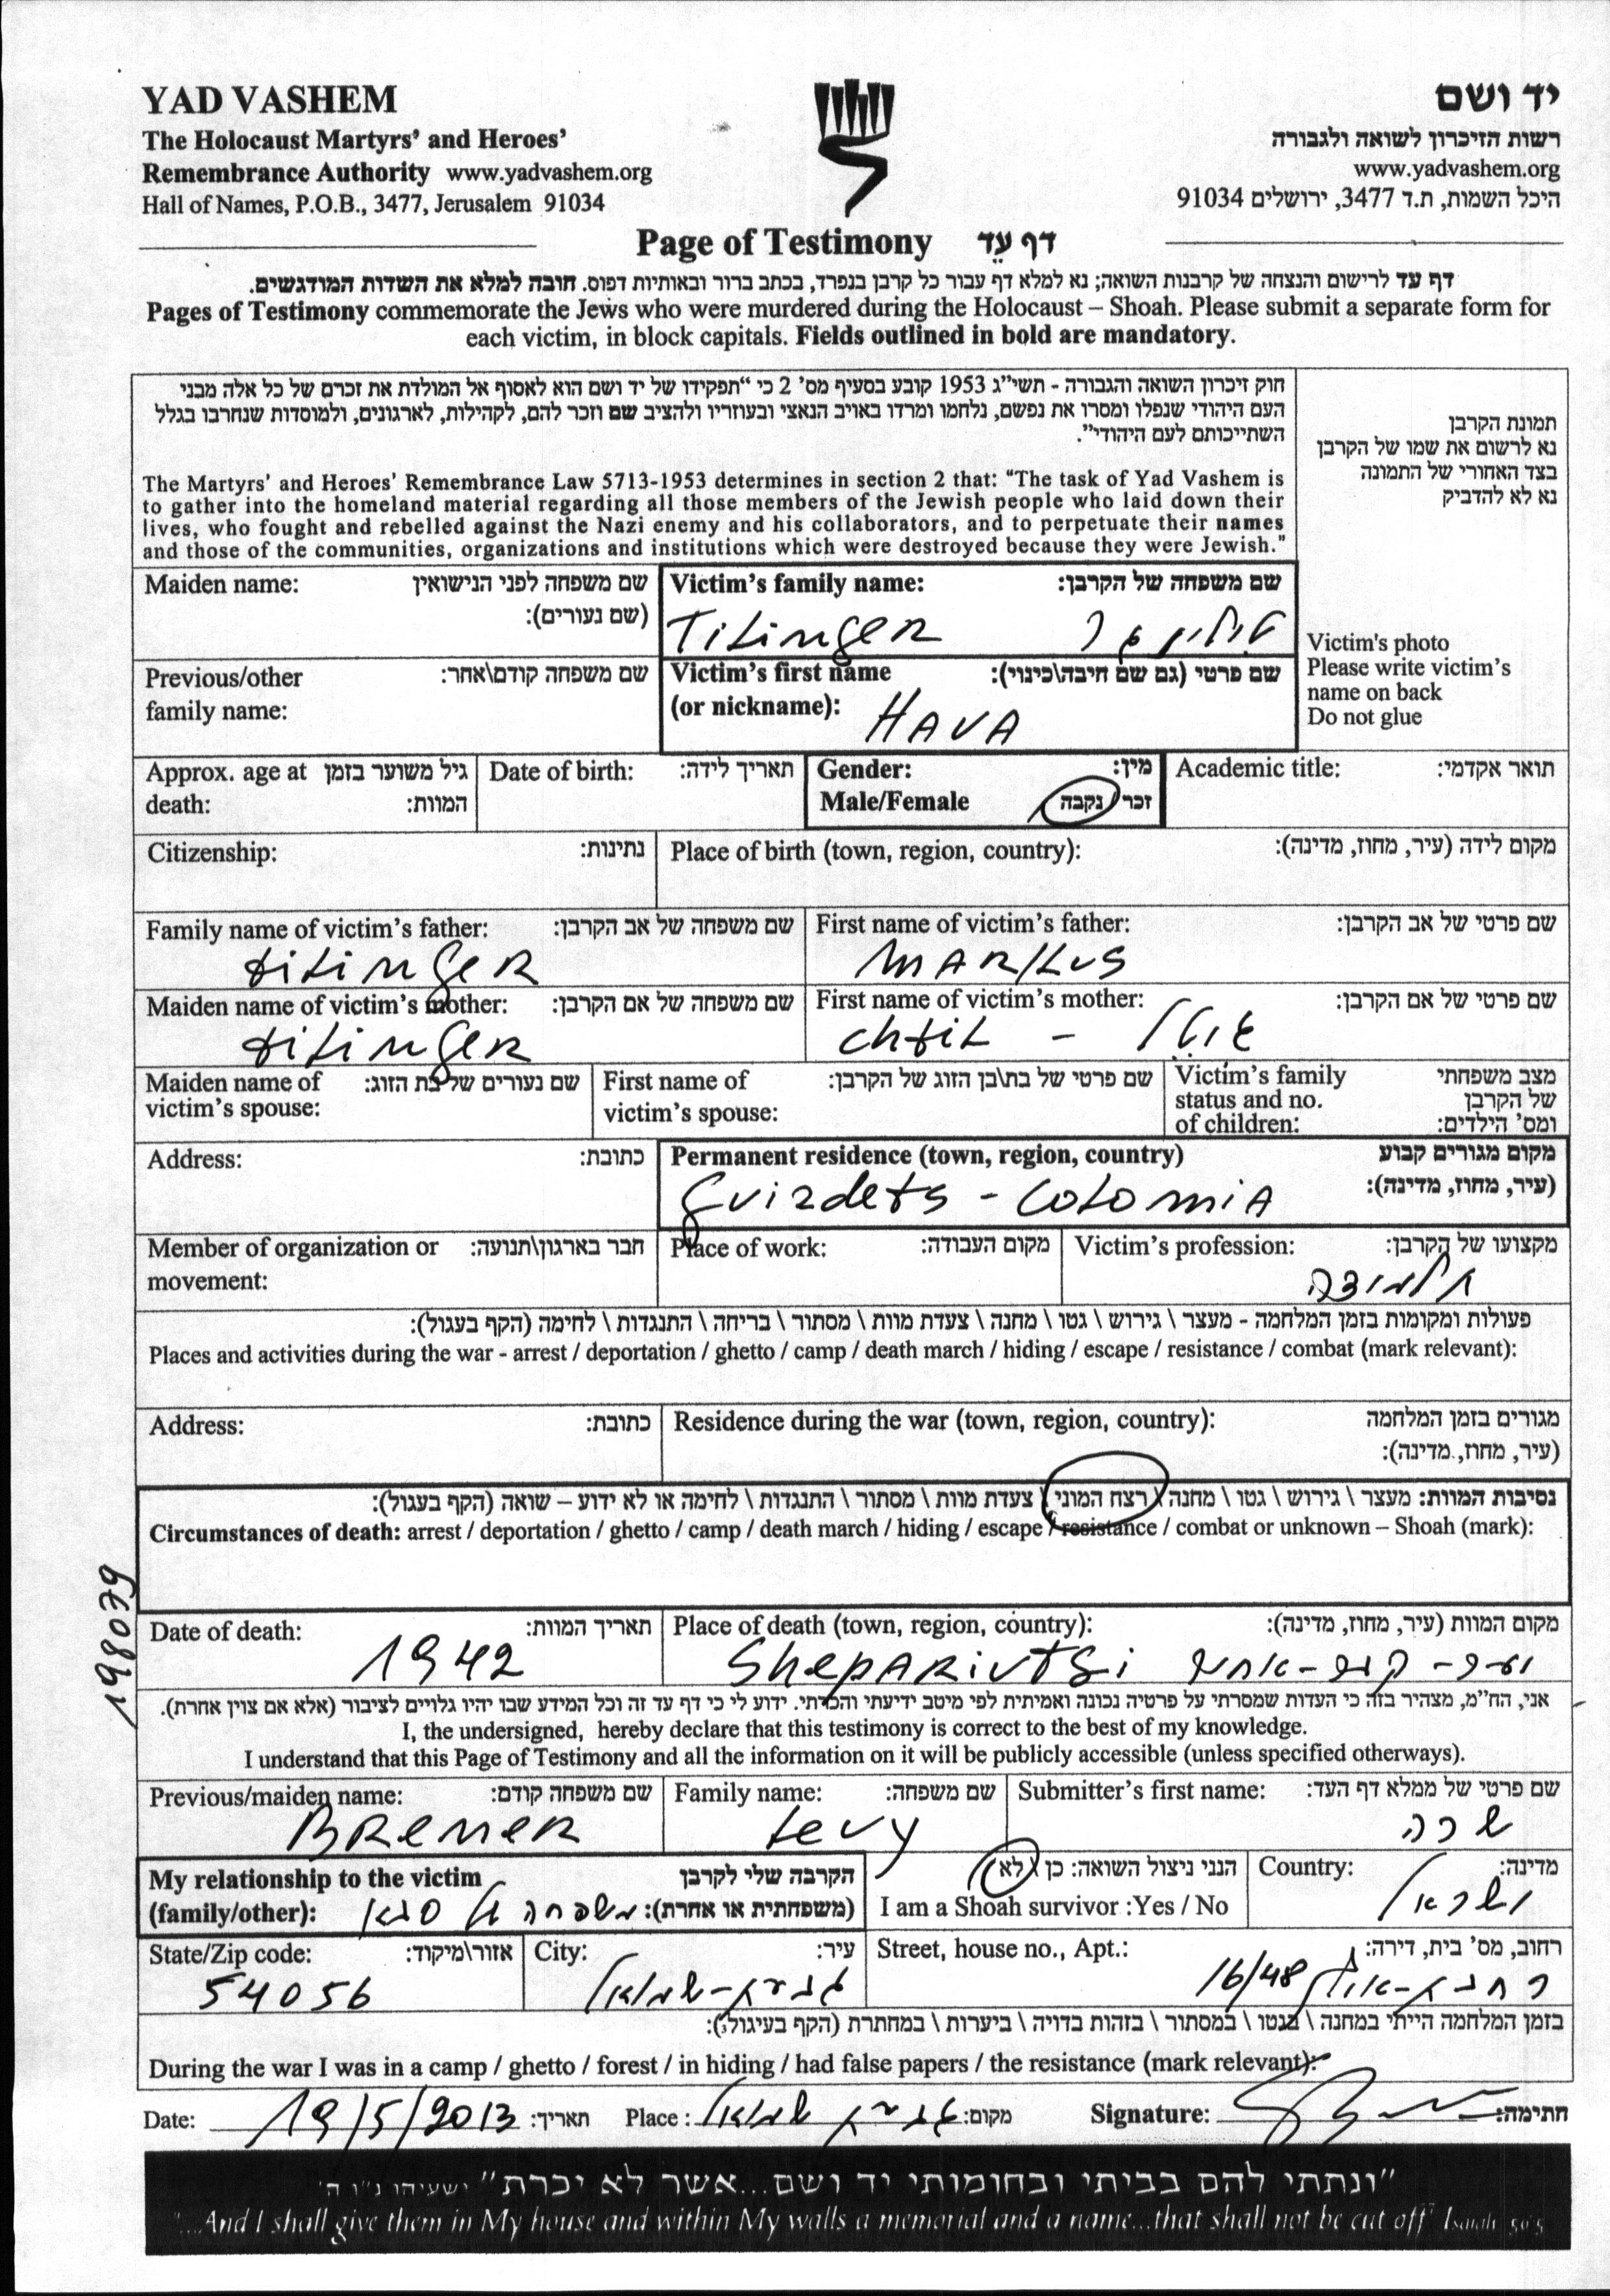 YAD VASHEM
The Holocaust Martyrs' and Heroes'
Remembrance Authority www.yadvashem.org
Hall of Names, P.O.B., 3477, Jerusalem 91034
יד ושם
רשות הזיכרון לשואה ולגבורה
www.yadvashem.org
היכל השמות, ת.ד 3477, ירושלים 91034
Page of Testimony דף עֵד
דף עד לרישום והנצחה של קרבנות השואה; נא למלא דף עבור כל קרבן בנפרד, בכתב ברור ובאותיות דפוס. חובה למלא את השדות המודגשים.
Pages of Testimony commemorate the Jews who were murdered during the Holocaust – Shoah. Please submit a separate form for
each victim, in block capitals. Fields outlined in bold are mandatory.
חוק זיכרון השואה והגבורה - תשי"ג 1953 קובע בסעיף מס' 2 כי "תפקידו של יד ושם הוא לאסוף אל המולדת את זכרם של כל אלה מבני
העם היהודי שנפלו ומסרו את נפשם, נלחמו ומרדו באויב הנאצי ובעוזריו ולהציב שם וזכר להם, לקהילות, לארגונים, ולמוסדות שנחרבו בגלל
השתייכותם לעם היהודי".
The Martyrs' and Heroes' Remembrance Law 5713-1953 determines in section 2 that: "The task of Yad Vashem is
to gather into the homeland material regarding all those members of the Jewish people who laid down their
lives, who fought and rebelled against the Nazi enemy and his collaborators, and to perpetuate their names
and those of the communities, organizations and institutions which were destroyed because they were Jewish."
תמונת הקרבן
נא לרשום את שמו של הקרבן
בצד האחורי של התמונה
נא לא להדביק
Victim's photo
Please write victim's
name on back
Do not glue
Maiden name: שם משפחה לפני הנישואין
(שם נעורים):
Victim's family name: שם משפחה של הקרבן:
Titinger
Previous/other שם משפחה קודם\אחר:
family name:
Victim's first name שם פרטי (גם שם חיבה\כינוי):
(or nickname): HAVA
Approx. age at גיל משוער בזמן
death: המוות:
Date of birth: תאריך לידה:
Gender: מין:
Male/Female זכר / נקבה
Academic title: תואר אקדמי:
Citizenship: נתינות:
Place of birth (town, region, country): מקום לידה (עיר, מחוז, מדינה):
Family name of victim's father: שם משפחה של אב הקרבן:
titinger
First name of victim's father: שם פרטי של אב הקרבן:
MARKUS
Maiden name of victim's mother: שם משפחה של אם הקרבן:
titinger
First name of victim's mother: שם פרטי של אם הקרבן:
Maiden name of שם נעורים של בת הזוג:
victim's spouse:
First name of שם פרטי של בת\בן הזוג של הקרבן:
victim's spouse:
Victim's family מצב משפחתי
status and no. של הקרבן
of children: ומס' הילדים:
Address: כתובת:
Permanent residence (town, region, country) מקום מגורים קבוע
(עיר, מחוז, מדינה):
gvizdets - COLOMIA
Member of organization or חבר בארגון\תנועה:
movement:
Place of work: מקום העבודה:
Victim's profession: מקצועו של הקרבן:
תלמידה
פעולות ומקומות בזמן המלחמה - מעצר \ גירוש \ גטו \ מחנה \ צעדת מוות \ מסתור \ בריחה \ התנגדות \ לחימה (הקף בעגול):
Places and activities during the war - arrest / deportation / ghetto / camp / death march / hiding / escape / resistance / combat (mark relevant):
Address: כתובת:
Residence during the war (town, region, country): מגורים בזמן המלחמה
(עיר, מחוז, מדינה):
נסיבות המוות: מעצר \ גירוש \ גטו \ מחנה \ רצח המוני \ צעדת מוות \ מסתור \ התנגדות \ לחימה או לא ידוע – שואה (הקף בעגול):
Circumstances of death: arrest / deportation / ghetto / camp / death march / hiding / escape / resistance / combat or unknown – Shoah (mark):
198079
Date of death: תאריך המוות:
1942
Place of death (town, region, country): מקום המוות (עיר, מחוז, מדינה):
SheparivtSi
אני, הח"מ, מצהיר בזה כי העדות שמסרתי על פרטיה נכונה ואמיתית לפי מיטב ידיעתי והכרתי. ידוע לי כי דף עד זה וכל המידע שבו יהיו גלויים לציבור (אלא אם צוין אחרת).
I, the undersigned, hereby declare that this testimony is correct to the best of my knowledge.
I understand that this Page of Testimony and all the information on it will be publicly accessible (unless specified otherways).
Previous/maiden name: שם משפחה קודם:
BREMER
Family name: שם משפחה:
Levy
Submitter's first name: שם פרטי של ממלא דף העד:
שרה
My relationship to the victim הקרבה שלי לקרבן
(family/other): (משפחתית או אחרת): משפחה של סבא
הנני ניצול השואה: כן \ לא
I am a Shoah survivor :Yes / No
Country: מדינה:
ישראל
State/Zip code: אזור\מיקוד:
54056
City: עיר:
גבעת-שמואל
Street, house no., Apt.: רחוב, מס' בית, דירה:
16/48
בזמן המלחמה הייתי במחנה \ בגטו \ במסתור \ בזהות בדויה \ ביערות \ במחתרת (הקף בעיגול):
During the war I was in a camp / ghetto / forest / in hiding / had false papers / the resistance (mark relevant):
Date: 19/5/2013 תאריך: Place : גבעת שמואל מקום: Signature: חתימה:
"ונתתי להם בביתי ובחומותי יד ושם...אשר לא יכרת" ישעיהו נ"ו ה'
"...And I shall give them in My house and within My walls a memorial and a name...that shall not be cut off" Isaiah 56:5